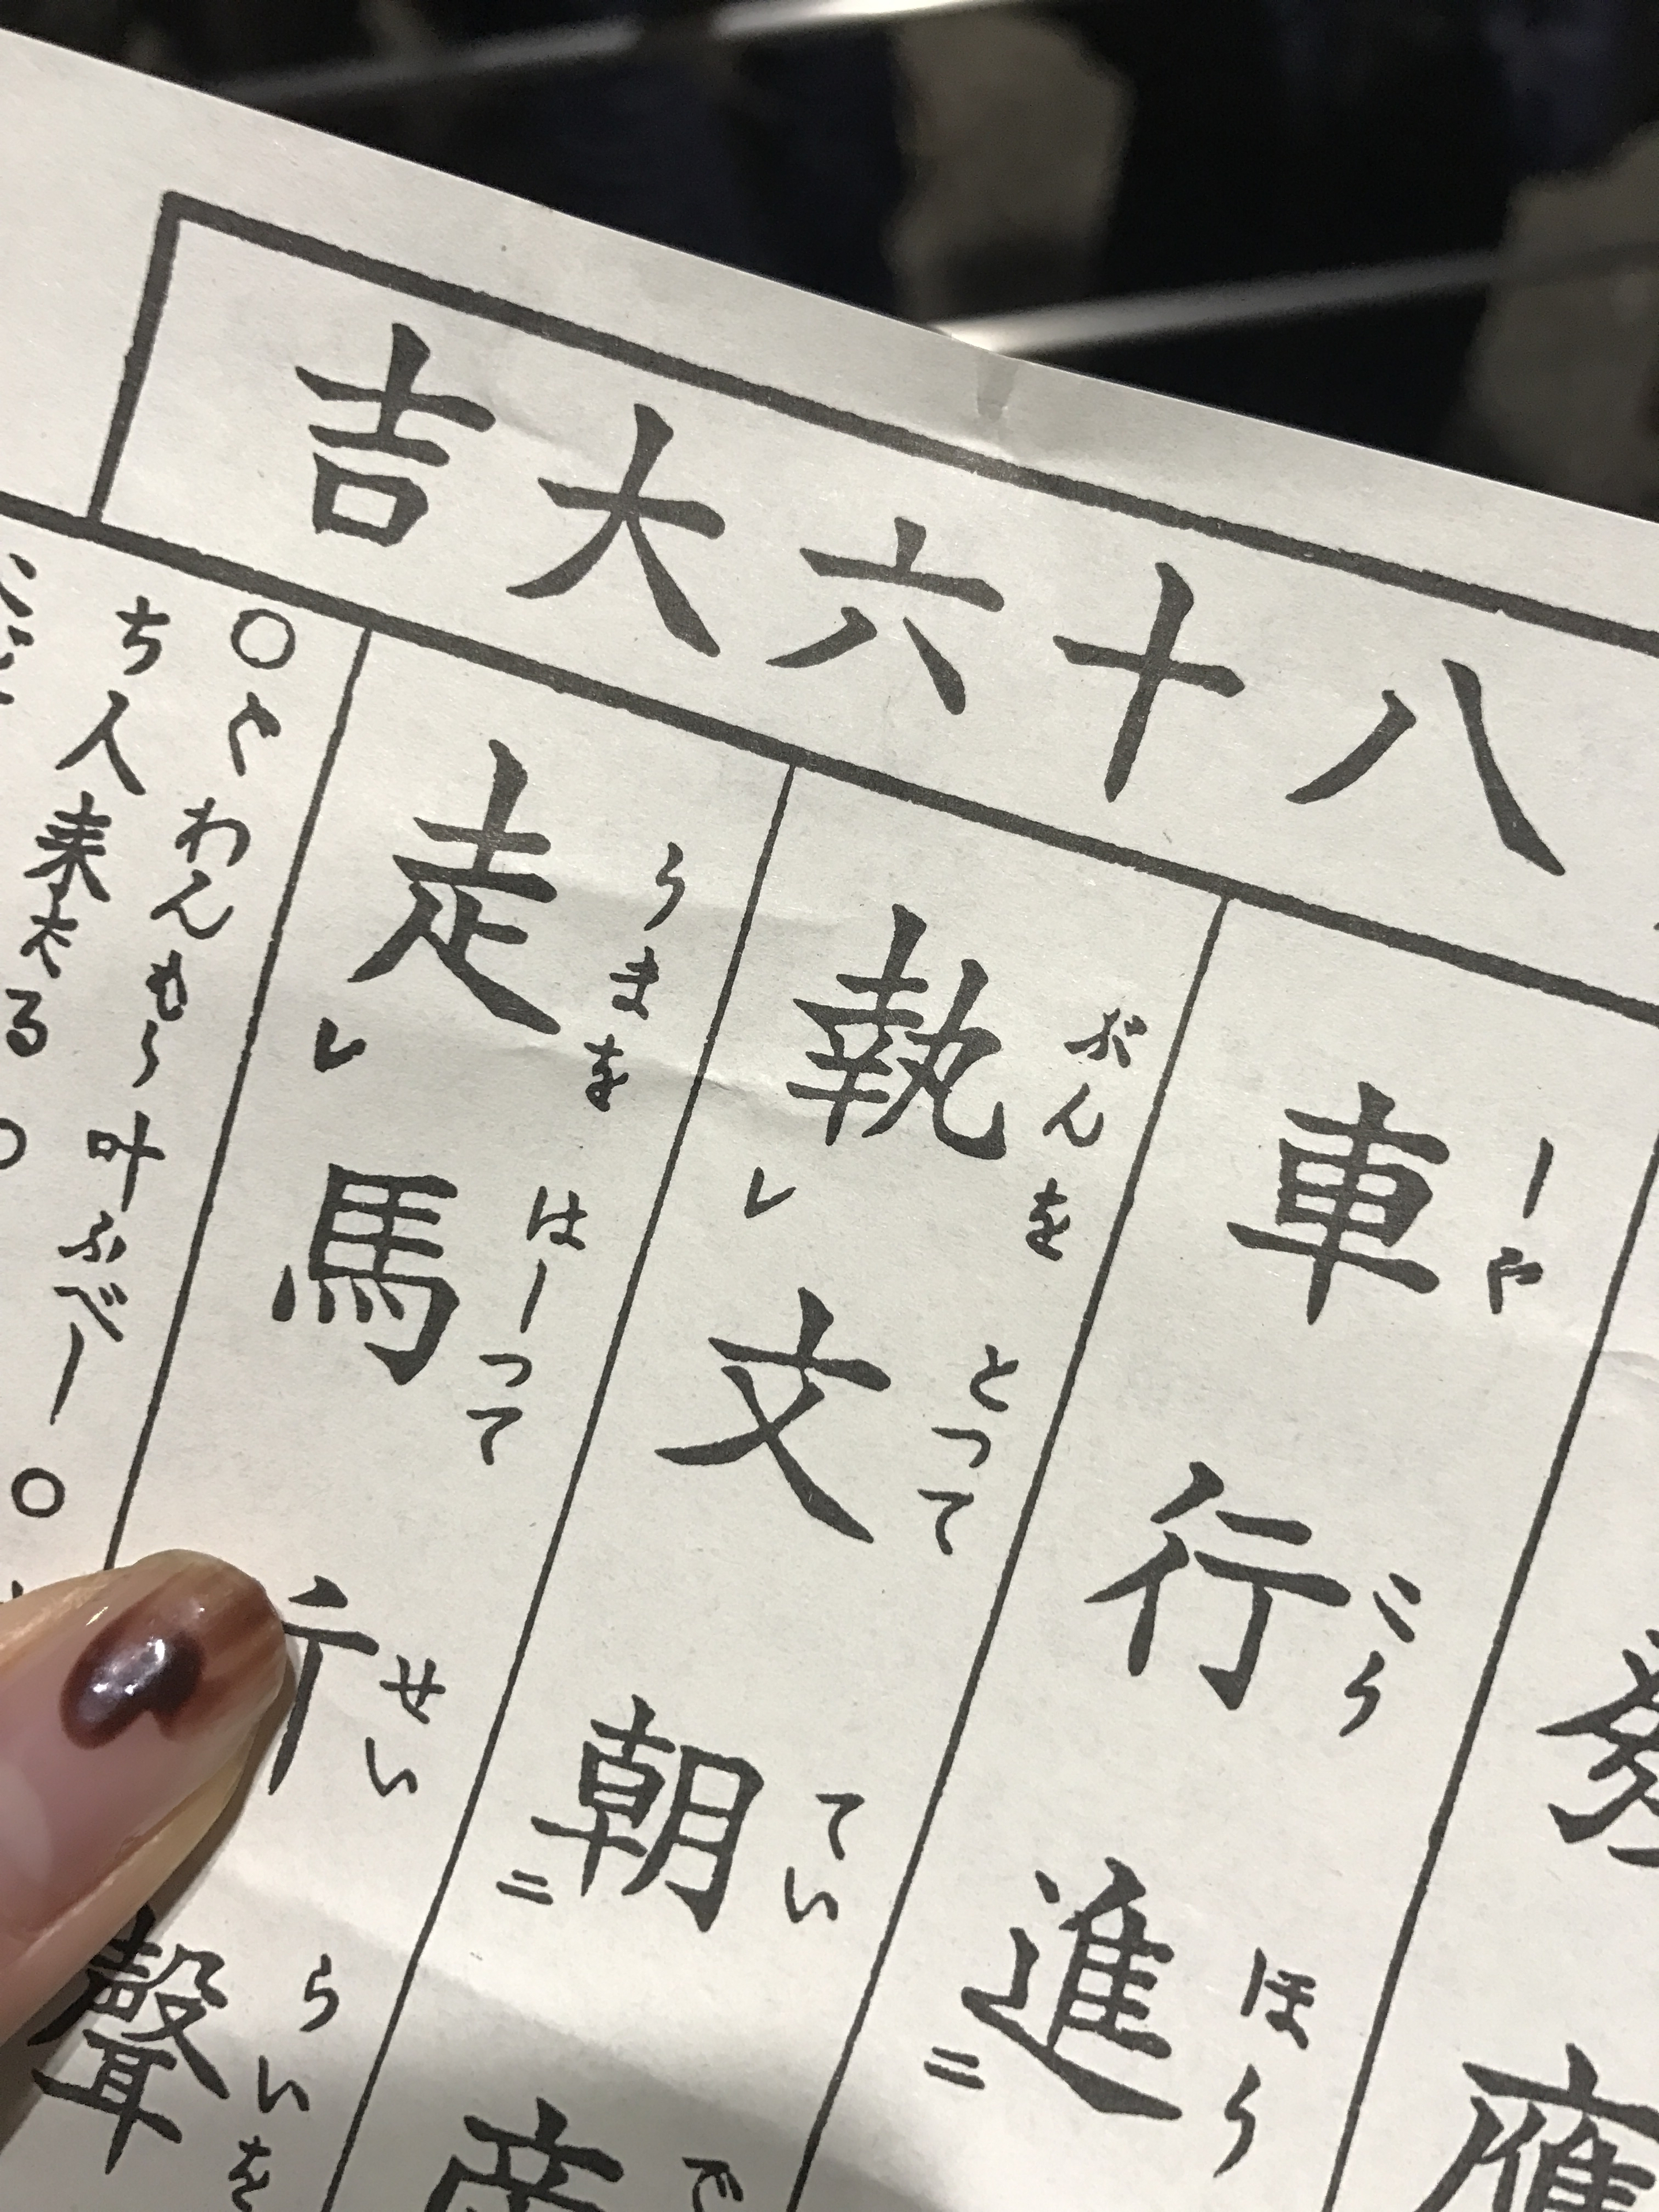 八十六大吉
しや
車
こう
行
ほう
進二
ぶんを とつて
執レ文
てい
朝二
うまを はしつて
走レ馬
せい
行
らいを
聲
わんもう叶ふべし○
ち人来たる○